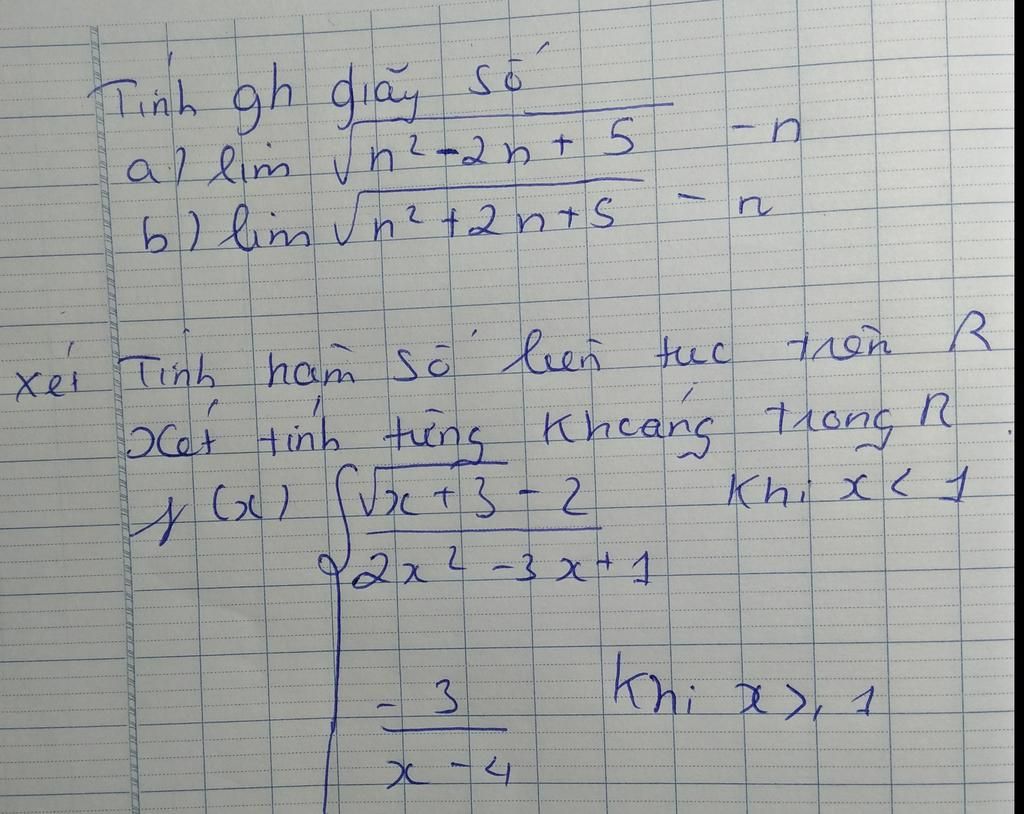 Tính gh giãy số
a) lim √n² - 2n + 5 - n
b) lim √n² + 2n + 5 - n
xét Tính hàm số liên tục trên R
Xét tính từng khoảng trong R
f(x) { √x + 3 - 2 Khi x < 1
2x² - 3x + 1
- 3 Khi x ≥ 1
x - 4